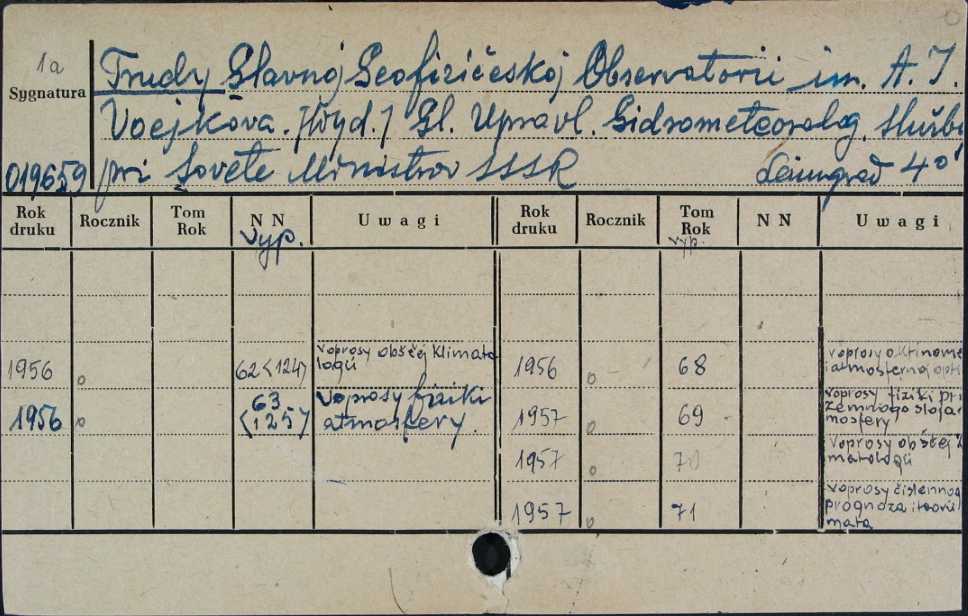 1a
Trudy Glavnoj Geofizičeskoj Observatorii im. A. I.
Sygnatura
Voejkova. /Wyd./ Gl. Upravl. Gidrometeorolog. služby
019659 pri Sovete Ministrov SSSR Leningrad 4°
Rok druku Rocznik Tom Rok NN Uwagi Rok druku Rocznik Tom Rok NN Uwagi
vyp. vyp.
1956 o 62<124> voprosy obščej klimatologii 1956 o 68 voprosy aktinome i atmosfernoj opti
1956 o 63 <125> voprosy fiziki atmosfery. 1957 o 69 voprosy fiziki pri zemnogo sloja mosfery
1957 o 70 voprosy obščej matologii
1957 o 71 voprosy čislennog prognoza i teorii mata